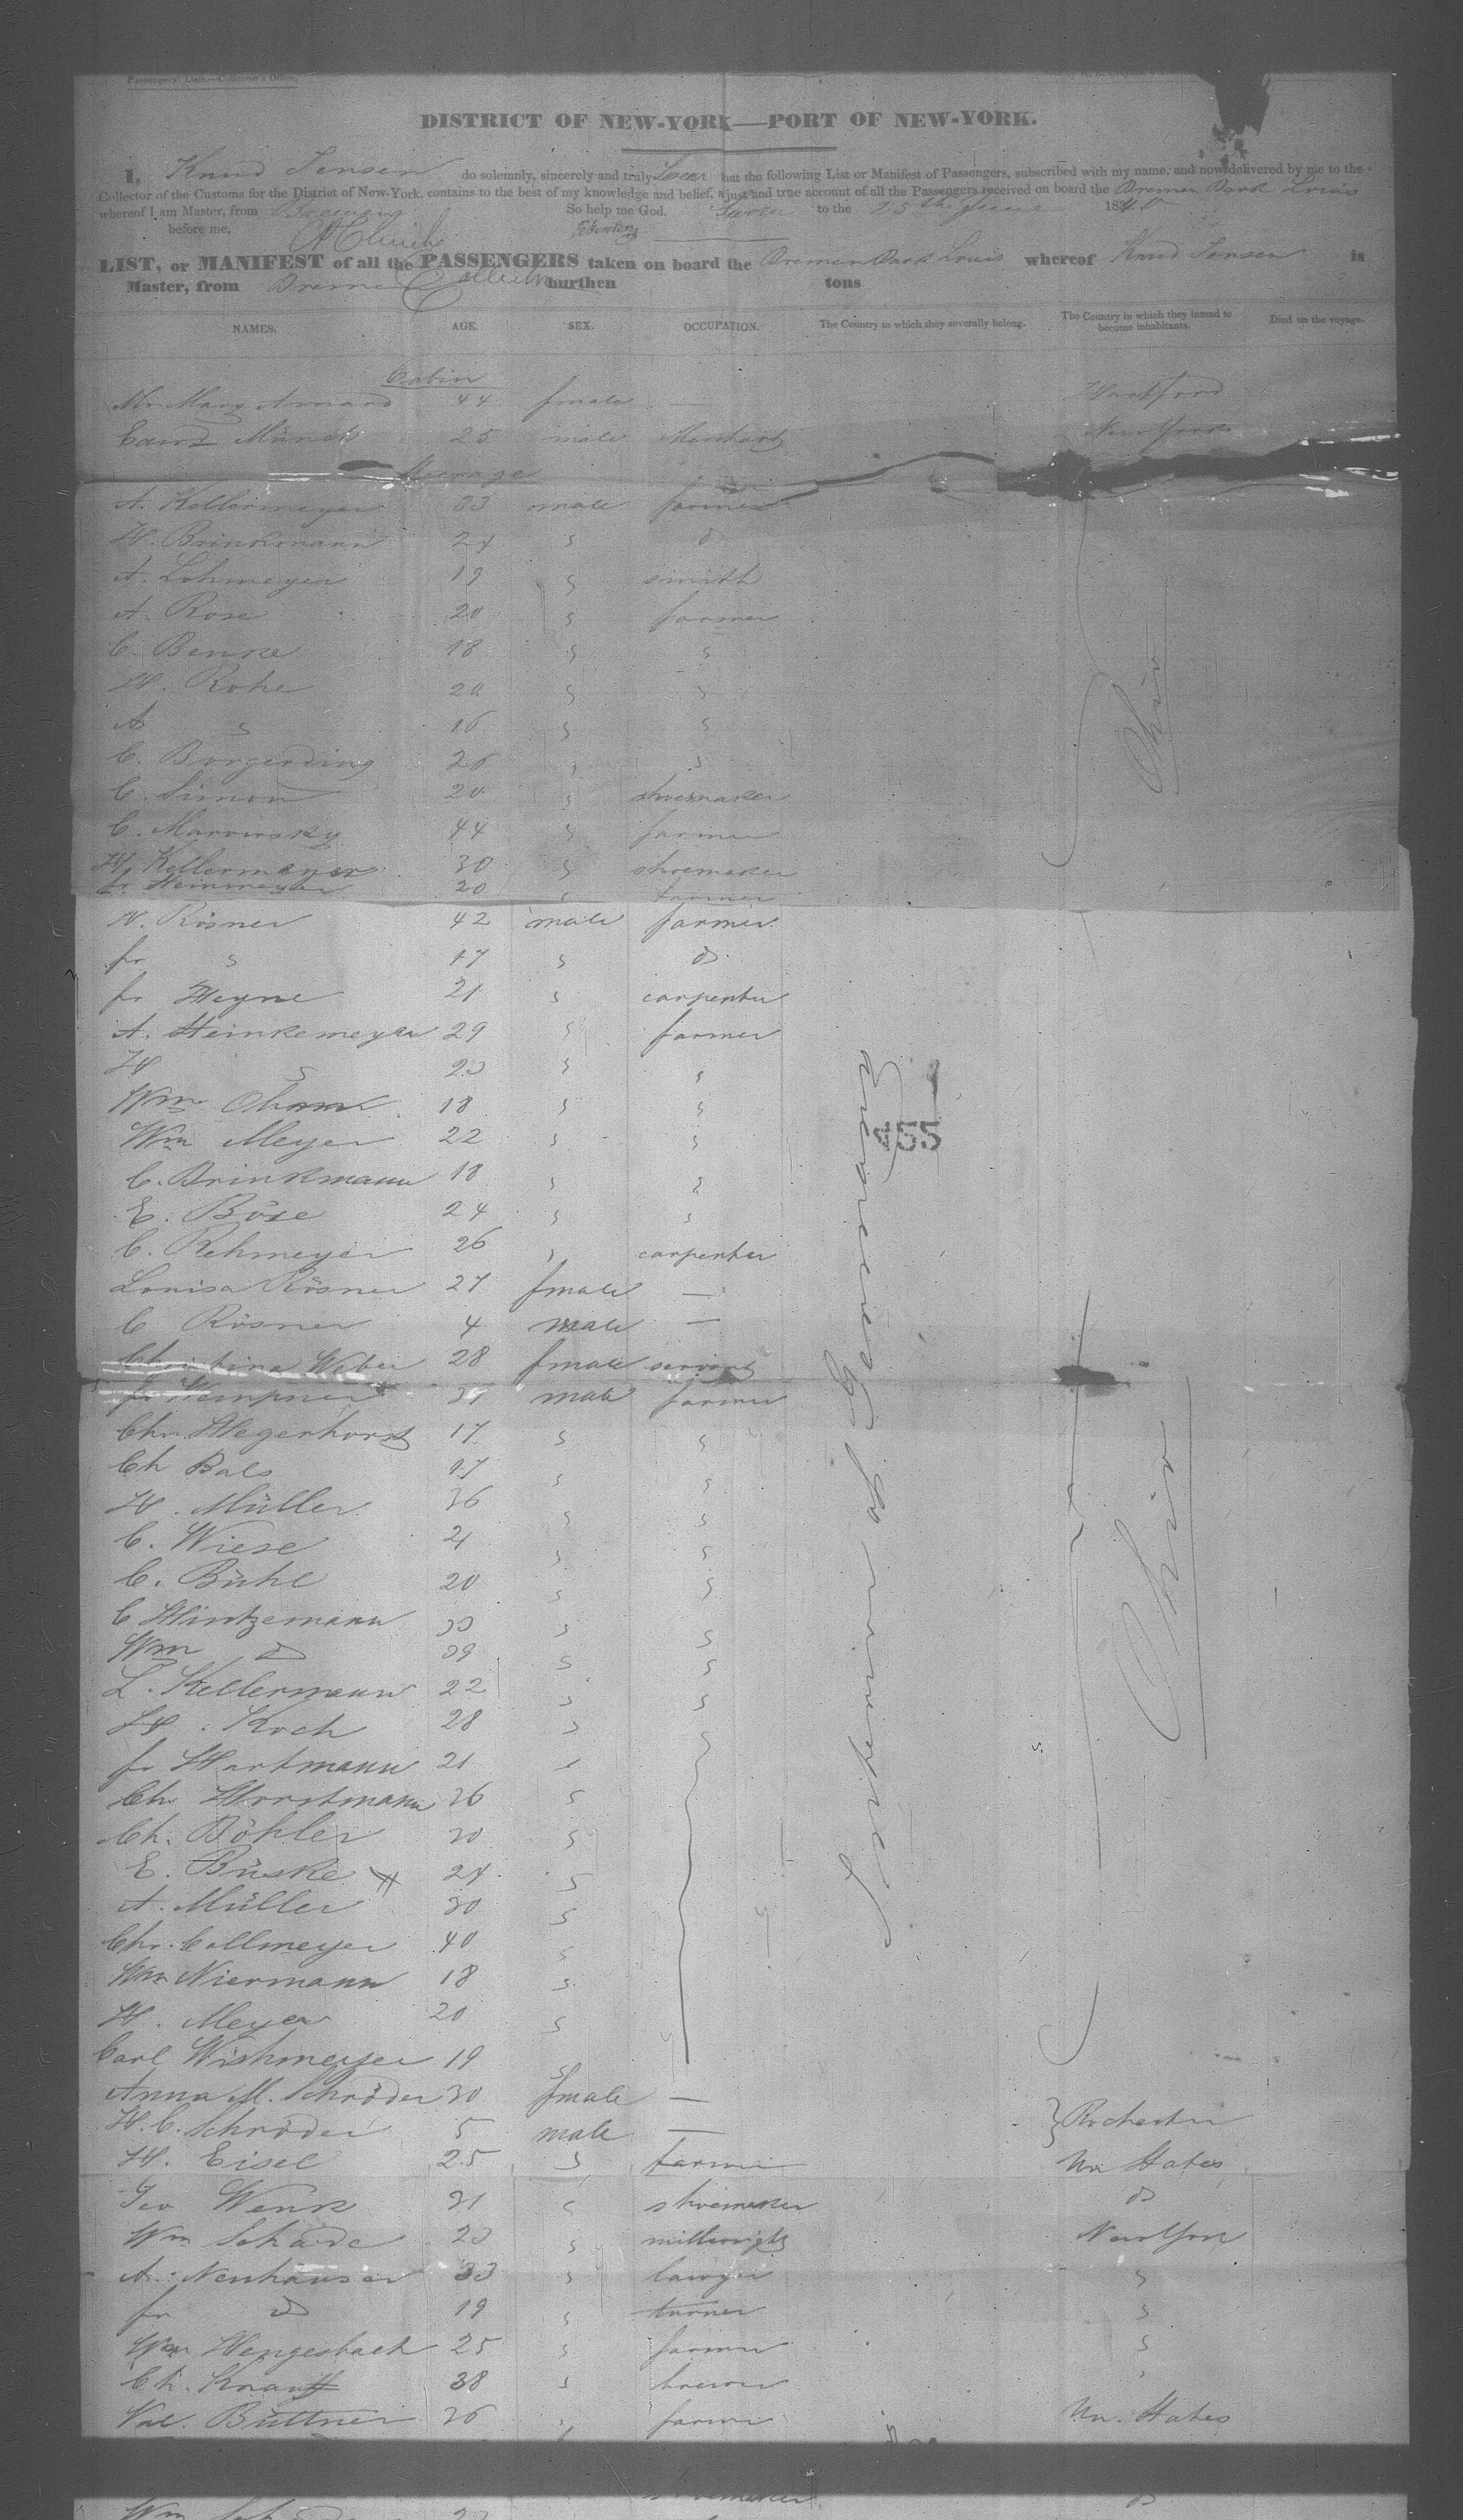 Passengers' Lists—Collector's Office.
DISTRICT OF NEW-YORK—PORT OF NEW-YORK.
I, Knud Jensen do solemnly, sincerely and truly Swear that the following List or Manifest of Passengers, subscribed with my name, and now delivered by me to the
Collector of the Customs for the District of New-York, contains to the best of my knowledge and belief, a just and true account of all the Passengers received on board the Bremer Bark Louis
whereof I am Master, from Bremen So help me God. Sworn to the 25th June 1840
before me,
LIST, or MANIFEST of all the PASSENGERS taken on board the Bremer Bark Louis whereof Knud Jensen is
Master, from Bremen burthen tons
NAMES. AGE. SEX. OCCUPATION. The Country to which they severally belong. The Country in which they intend to become inhabitants. Died on the voyage.
Cabin
Mrs Mary 44 fmale — Hartford
25 male New York
Steerage
A. Kellermeyer 33 male farmer
H. Brinkmann 24 s d
A. Lohmeyer 19 s smith
A. Rose 20 s farmer
C. Benke 18 s s
H. Rohe 20 s s
A s 16 s s
C. Borgerding 26 s s
C. Simon 20 s shoemaker
C. Marowsky 44 s farmer
H. 30 s shoemaker
fr Heinmeyer 20 s farmer
H. Rösner 42 male farmer
fr s 17 s do
fr Heyne 21 s carpenter
A. Heinkemeyer 29 s farmer
H s 23 s s
Wm 18 s s
Wm Meyer 22 s s
C. Brinkmann 18 s s
E. Böse 24 s s
C. Rehmeyer 26 s carpenter
Louisa Rösner 27 fmale —
C Rösner 4 male —
Christina Weber 28 fmale servant
fr male farmer
Chr. Hegerhorst 17 s s
Ch Bals 17 s s
H. Müller 36 s s
C. Wiese 21 s s
C. Bühl 20 s s
C Hintzemann 33 s s
Wm do 39 s s
L. Kellermann 22 s s
H. Koch 28 s
fr Hartmann 21 s
Ch Horstmann 36 s
Ch. Böhler 30 s
E. Büske 24 s
A. Müller 30 s
Chr. Collmeyer 40 s
Wm Niermann 18 s
H. Meyer 20 s
Carl Wishmeyer 19 s
Anna M. Schröder 30 fmale —
H. C. Schröder 5 male — Rochester
H. Eisel 25 s farmer Un States
Geo Wenk 31 s shoemaker do
Wm Schade 23 s millwright New York
A. Neuhauser 33 s lawyer s
fr do 19 s turner s
Wm Hengesbach 25 s farmer s
Ch. Knauff 38 s brewer
Val. Büttner 36 s farmer Un. States
Ohio
Ohio
Interior of Germany
455